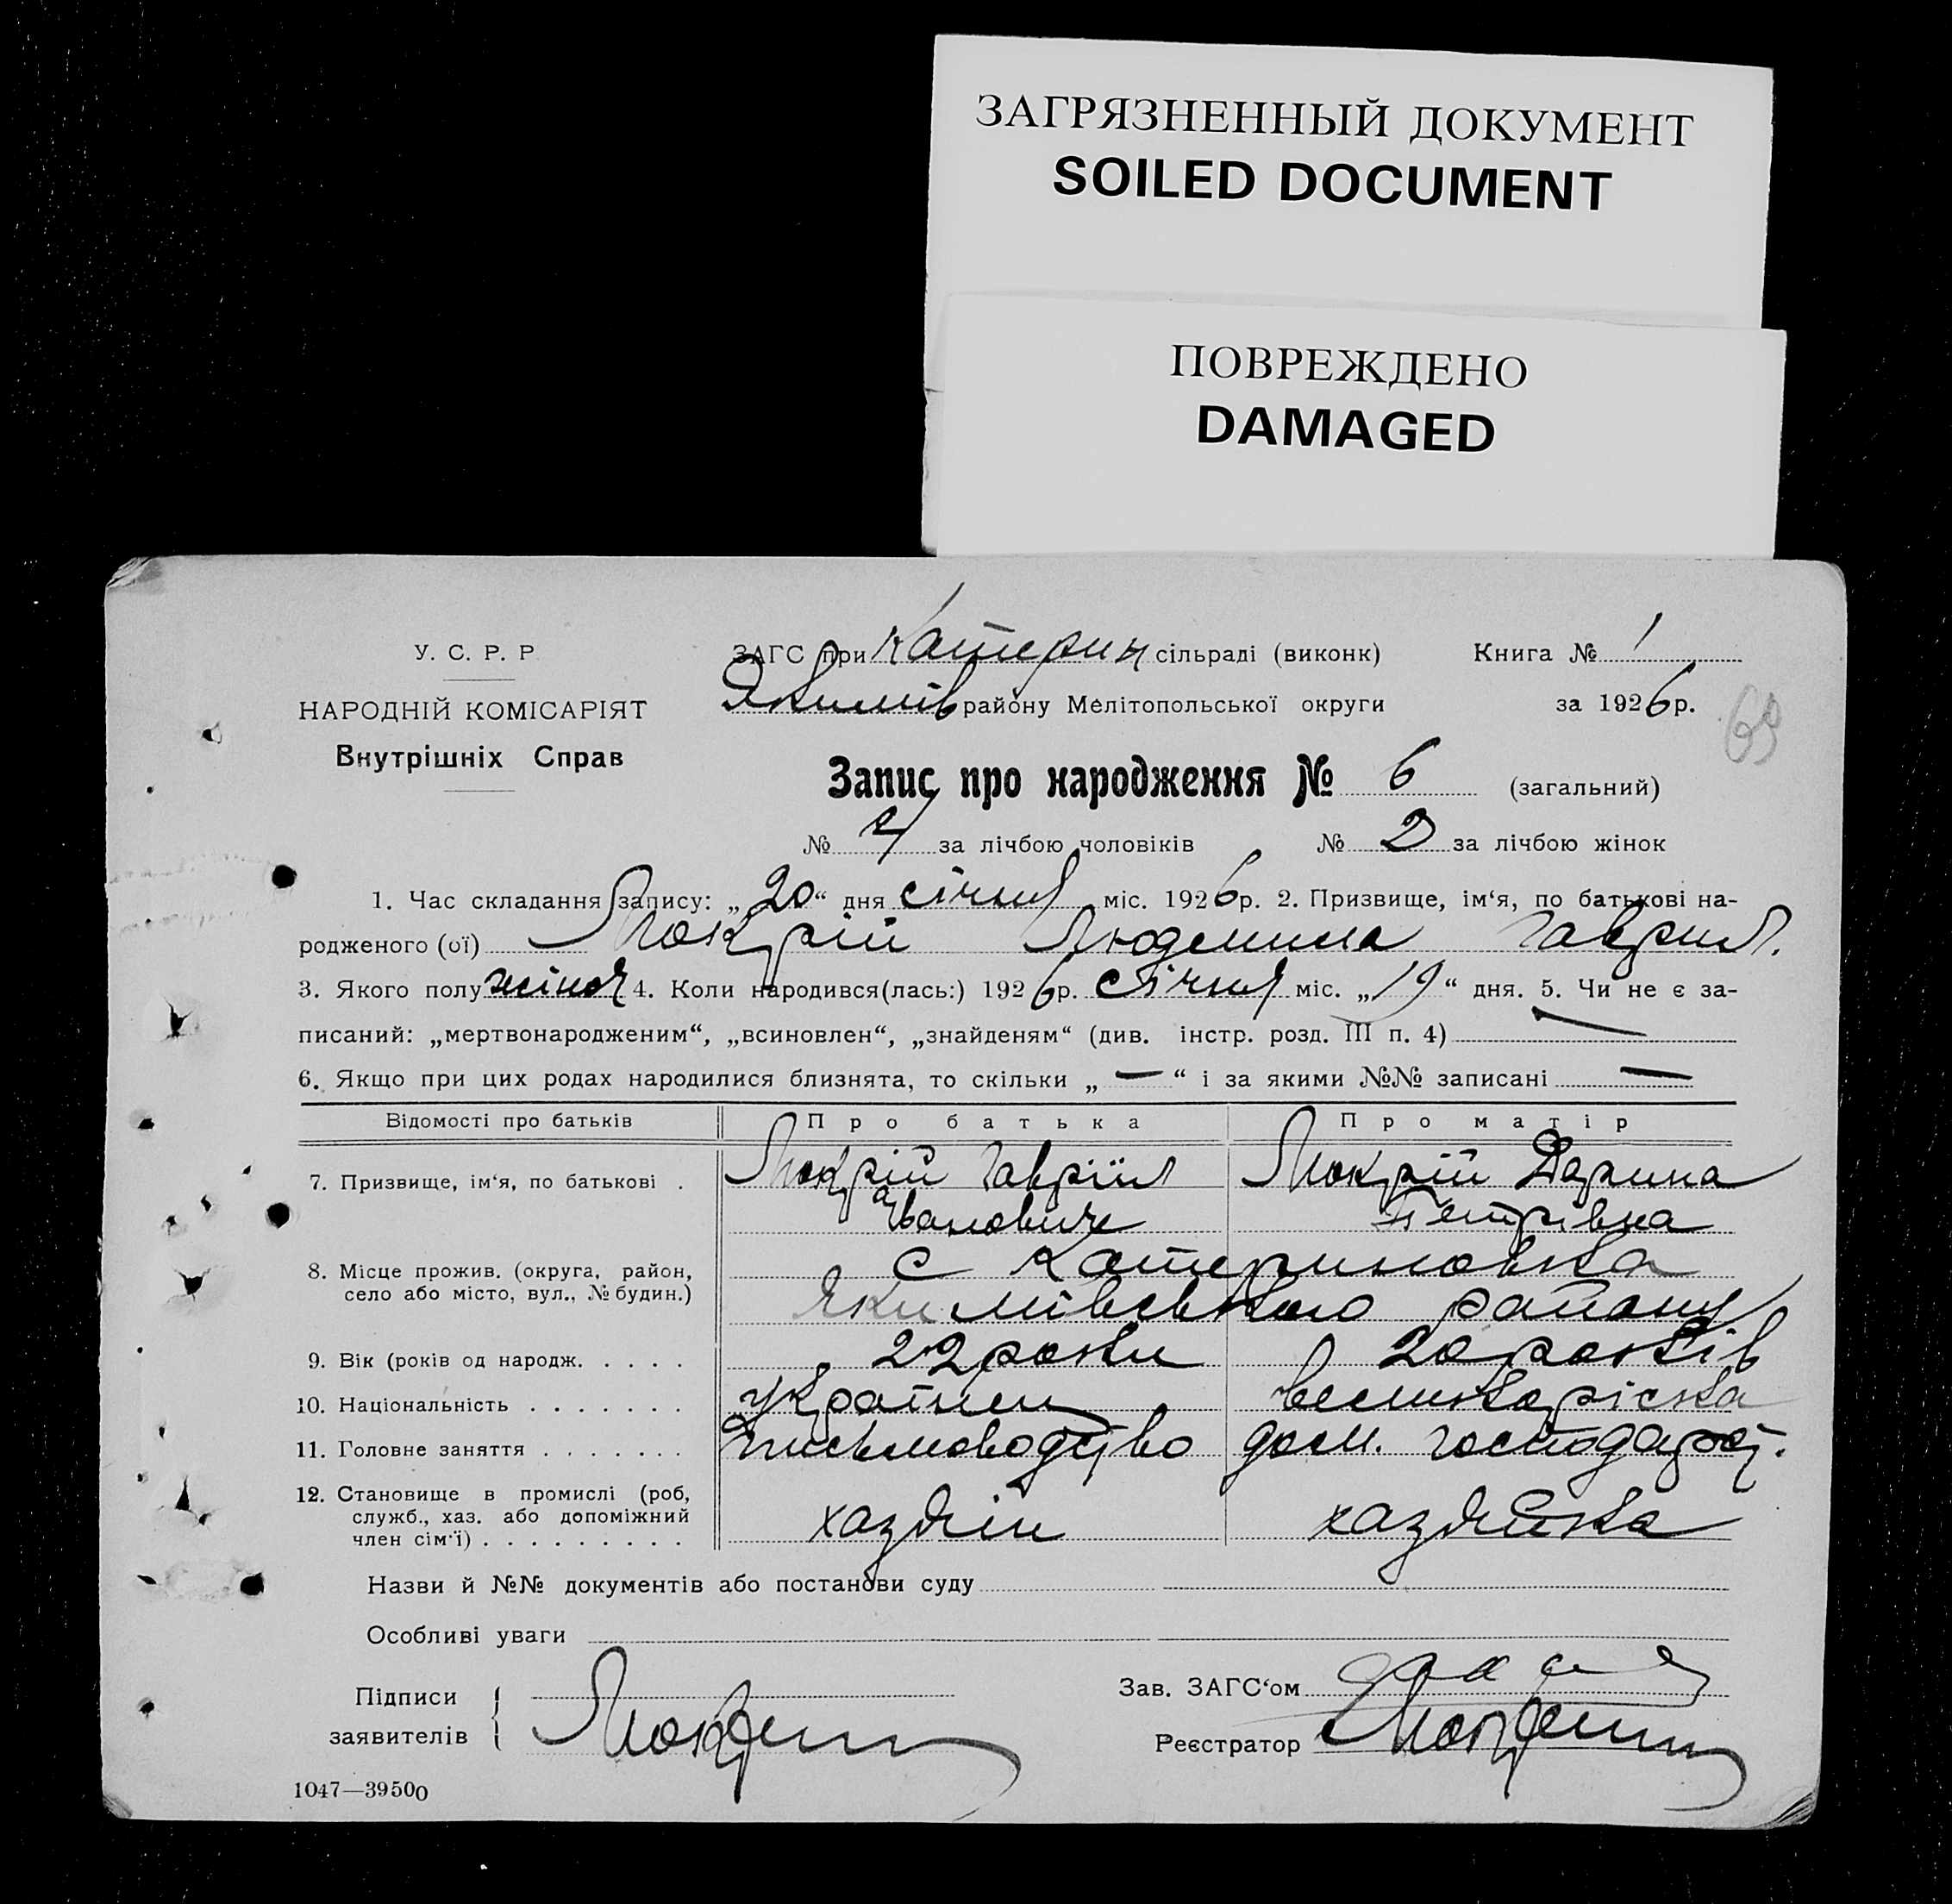 ЗАГРЯЗНЕННЫЙ ДОКУМЕНТ
SOILED DOCUMENT
ПОВРЕЖДЕНО
DAMAGED
У. С. Р. Р
НАРОДНІЙ КОМІСАРІЯТ
Внутрішніх Справ
ЗАГС при Катерин сільраді (виконк) Книга № 1
Якимів району Мелітопольської округи за 1926 р.
69
Запис про народження № 6 (загальний)
№ 4 за лічбою чоловіків № 2 за лічбою жінок
1. Час складання запису: „ 20 “ дня січня міс. 1926 р. 2. Призвище, ім‘я, по батькові на-
родженого (ої) Мокрій Людемила Гаврил.
3. Якого полу жіноч 4. Коли народився(лась:) 1926 р. січня міс. „ 19 “ дня. 5. Чи не є за-
писаний: „мертвонародженим“, „всиновлен“, „знайденям“ (див. інстр. розд. III п. 4) —
6. Якщо при цих родах народилися близнята, то скільки „ — “ і за якими №№ записані —
Відомості про батьків Про батька Про матір
7. Призвище, ім‘я, по батькові . Мокрій Гавріїл Мокрій Дарина
Івановиче Петрівна
8. Місце прожив. (округа, район, с Катериновка
село або місто, вул., № будин.) Якимівського району
9. Вік (років од народж. . . . . 22 роки 20 років
10. Національність . . . . . . . Українец великоріска
11. Головне заняття . . . . . . . письмоводство дом. господарст.
12. Становище в промислі (роб,
служб., хаз. або допоміжний хазяїн хазяйка
член сім‘ї) . . . . . . . . .
Назви й №№ документів або постанови суду
Особливі уваги
Підписи
заявителів Мокрий
Зав. ЗАГС‘ом
Реєстратор Мокрий
1047—39500